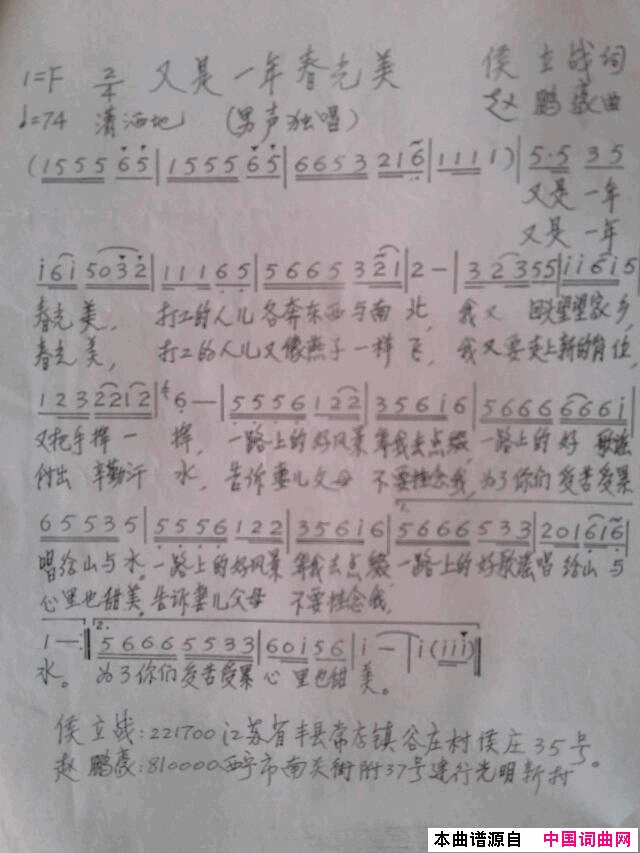 1=F 2/4 又是一年春光美 侯立战词
♩=74 潇洒地 (男声独唱) 赵鹏豪曲
(1555 65|1555 65|6653 216|1111)|5·5 35
又是一年
又是一年
i6i 5032|11165|56665 321|2—|32355|iii6i5|
春光美, 打工的人儿各奔东西与南北, 我又回望望家乡,
春光美, 打工的人儿又像燕子一样飞, 我又要走上新的岗位,
1232212|6—|5556 122|356i6|5666 666i|
又把手挥一挥, 一路上的好风景等我去点缀,一路上的好歌谣
付出辛勤汗水, 告诉妻儿父母不要挂念我,为了你们受苦受累
65535|5556 122|356i6|5666 533|201616|
唱给山与水。一路上的好风景等我去点缀,一路上的好歌谣唱给山与
心里也甜美。告诉妻儿父母不要挂念我,
1—:‖2.5666 5533|60i56|i—|i(iii)‖
水。为了你们受苦受累心里也甜美。
侯立战:221700江苏省丰县常店镇谷庄村侯庄35号。
赵鹏豪:810000西宁市南关街附37号建行光明新村
本曲谱源自 中国词曲网